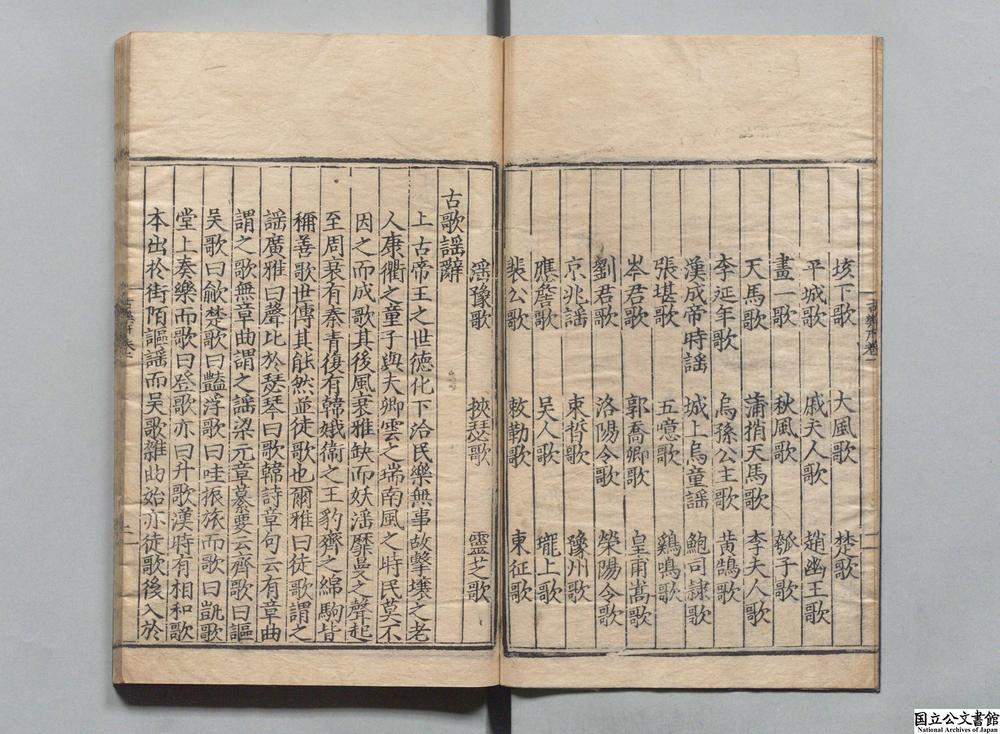 垓下歌 大風歌 楚歌
平城歌 戚夫人歌 趙幽王歌
畫一歌 秋風歌 瓠子歌
天馬歌 蒲梢天馬歌 李夫人歌
李延年歌 烏孫公主歌 黃鵠歌
漢成帝時謡 城上烏童謡 鮑司隷歌
張堪歌 五噫歌 鷄鳴歌
岑君歌 郭喬卿歌 皇甫嵩歌
劉君歌 洛陽令歌 滎陽令歌
京兆謡 束晳歌 豫州歌
應詹歌 吴人歌 隴上歌
裴公歌 敕勒歌 東征歌
滛豫歌 挾瑟歌 靈芝歌
古歌謡辭
上古帝王之世德化下洽民樂無事故擊壤之老
人康衢之童子與夫卿雲之瑞南風之時民莫不
因之而成歌其後風衰雅缺而妖滛靡曼之聲起
至周衰有秦青復有韓娥衛之王豹齊之綿駒皆
稱善歌世傳其能然並徒歌也爾雅曰徒歌謂之
謡廣雅曰聲比於琴瑟曰歌韓詩章句云有章曲
謂之歌無章曲謂之謡梁元章纂要云齊歌曰謳
吴歌曰歈楚歌曰豔浮歌曰哇振旅而歌曰凱歌
堂上奏樂而歌曰登歌亦曰升歌漢時有相和歌
本出於街陌謳謡而吴歌雜曲始亦徒歌後入於
国立公文書館
National Archives of Japan